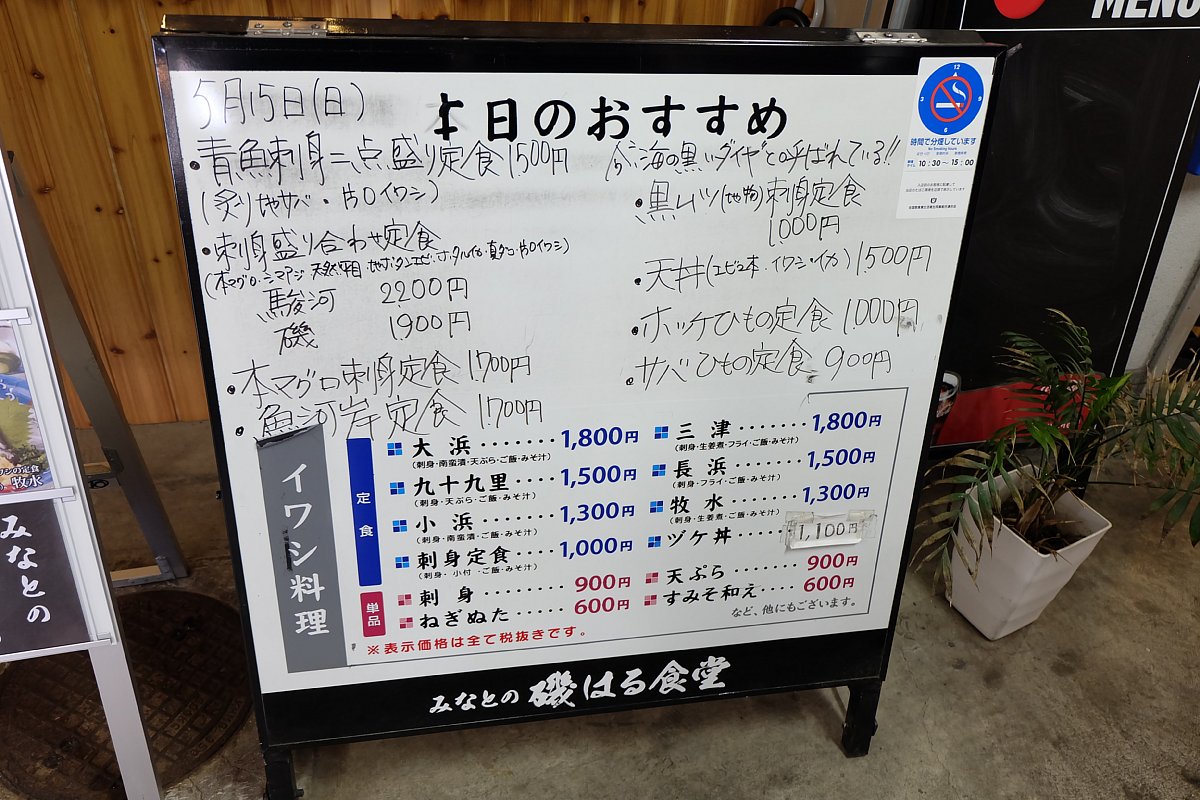 MENU
5月15日(日)
本日のおすすめ
・青魚刺身二点盛り定食 1500円
(炙り地サバ・片口イワシ)
・刺身盛り合わせ定食
(本マグロ・シマアジ・天然平目・地ボタンエビ・ホタルイカ・真ダコ・片口イワシ)
駿河 2200円
磯 1,900円
・本マグロ刺身定食 1,700円
・魚河岸定食 1,700円
海の黒いダイヤと呼ばれている!!
・黒ムツ(地物)刺身定食
1,000円
・天丼(エビ2本・イワシ・イカ) 1,500円
・ホッケひもの定食 1,000円
・サバひもの定食 900円
時間で分煙しています
10:30〜15:00
イワシ料理
定食
大浜・・・・・・・1,800円
(刺身・南蛮漬・天ぷら・ご飯・みそ汁)
九十九里・・・・・1,500円
(刺身・天ぷら・ご飯・みそ汁)
小浜・・・・・・・1,300円
(刺身・南蛮漬・ご飯・みそ汁)
刺身定食・・・・・1,000円
(刺身・小付・ご飯・みそ汁)
三津・・・・・・・1,800円
(刺身・生姜煮・フライ・ご飯・みそ汁)
長浜・・・・・・・1,500円
(刺身・フライ・ご飯・みそ汁)
牧水・・・・・・・1,300円
(刺身・生姜煮・ご飯・みそ汁)
ヅケ丼・・・・・・1,100円
単品
刺身・・・・・・・900円
ねぎぬた・・・・・600円
天ぷら・・・・・・900円
すみそ和え・・・600円
など、他にもございます。
※表示価格は全て税抜きです。
みなとの 磯はる食堂
の定食
牧水
みなとの